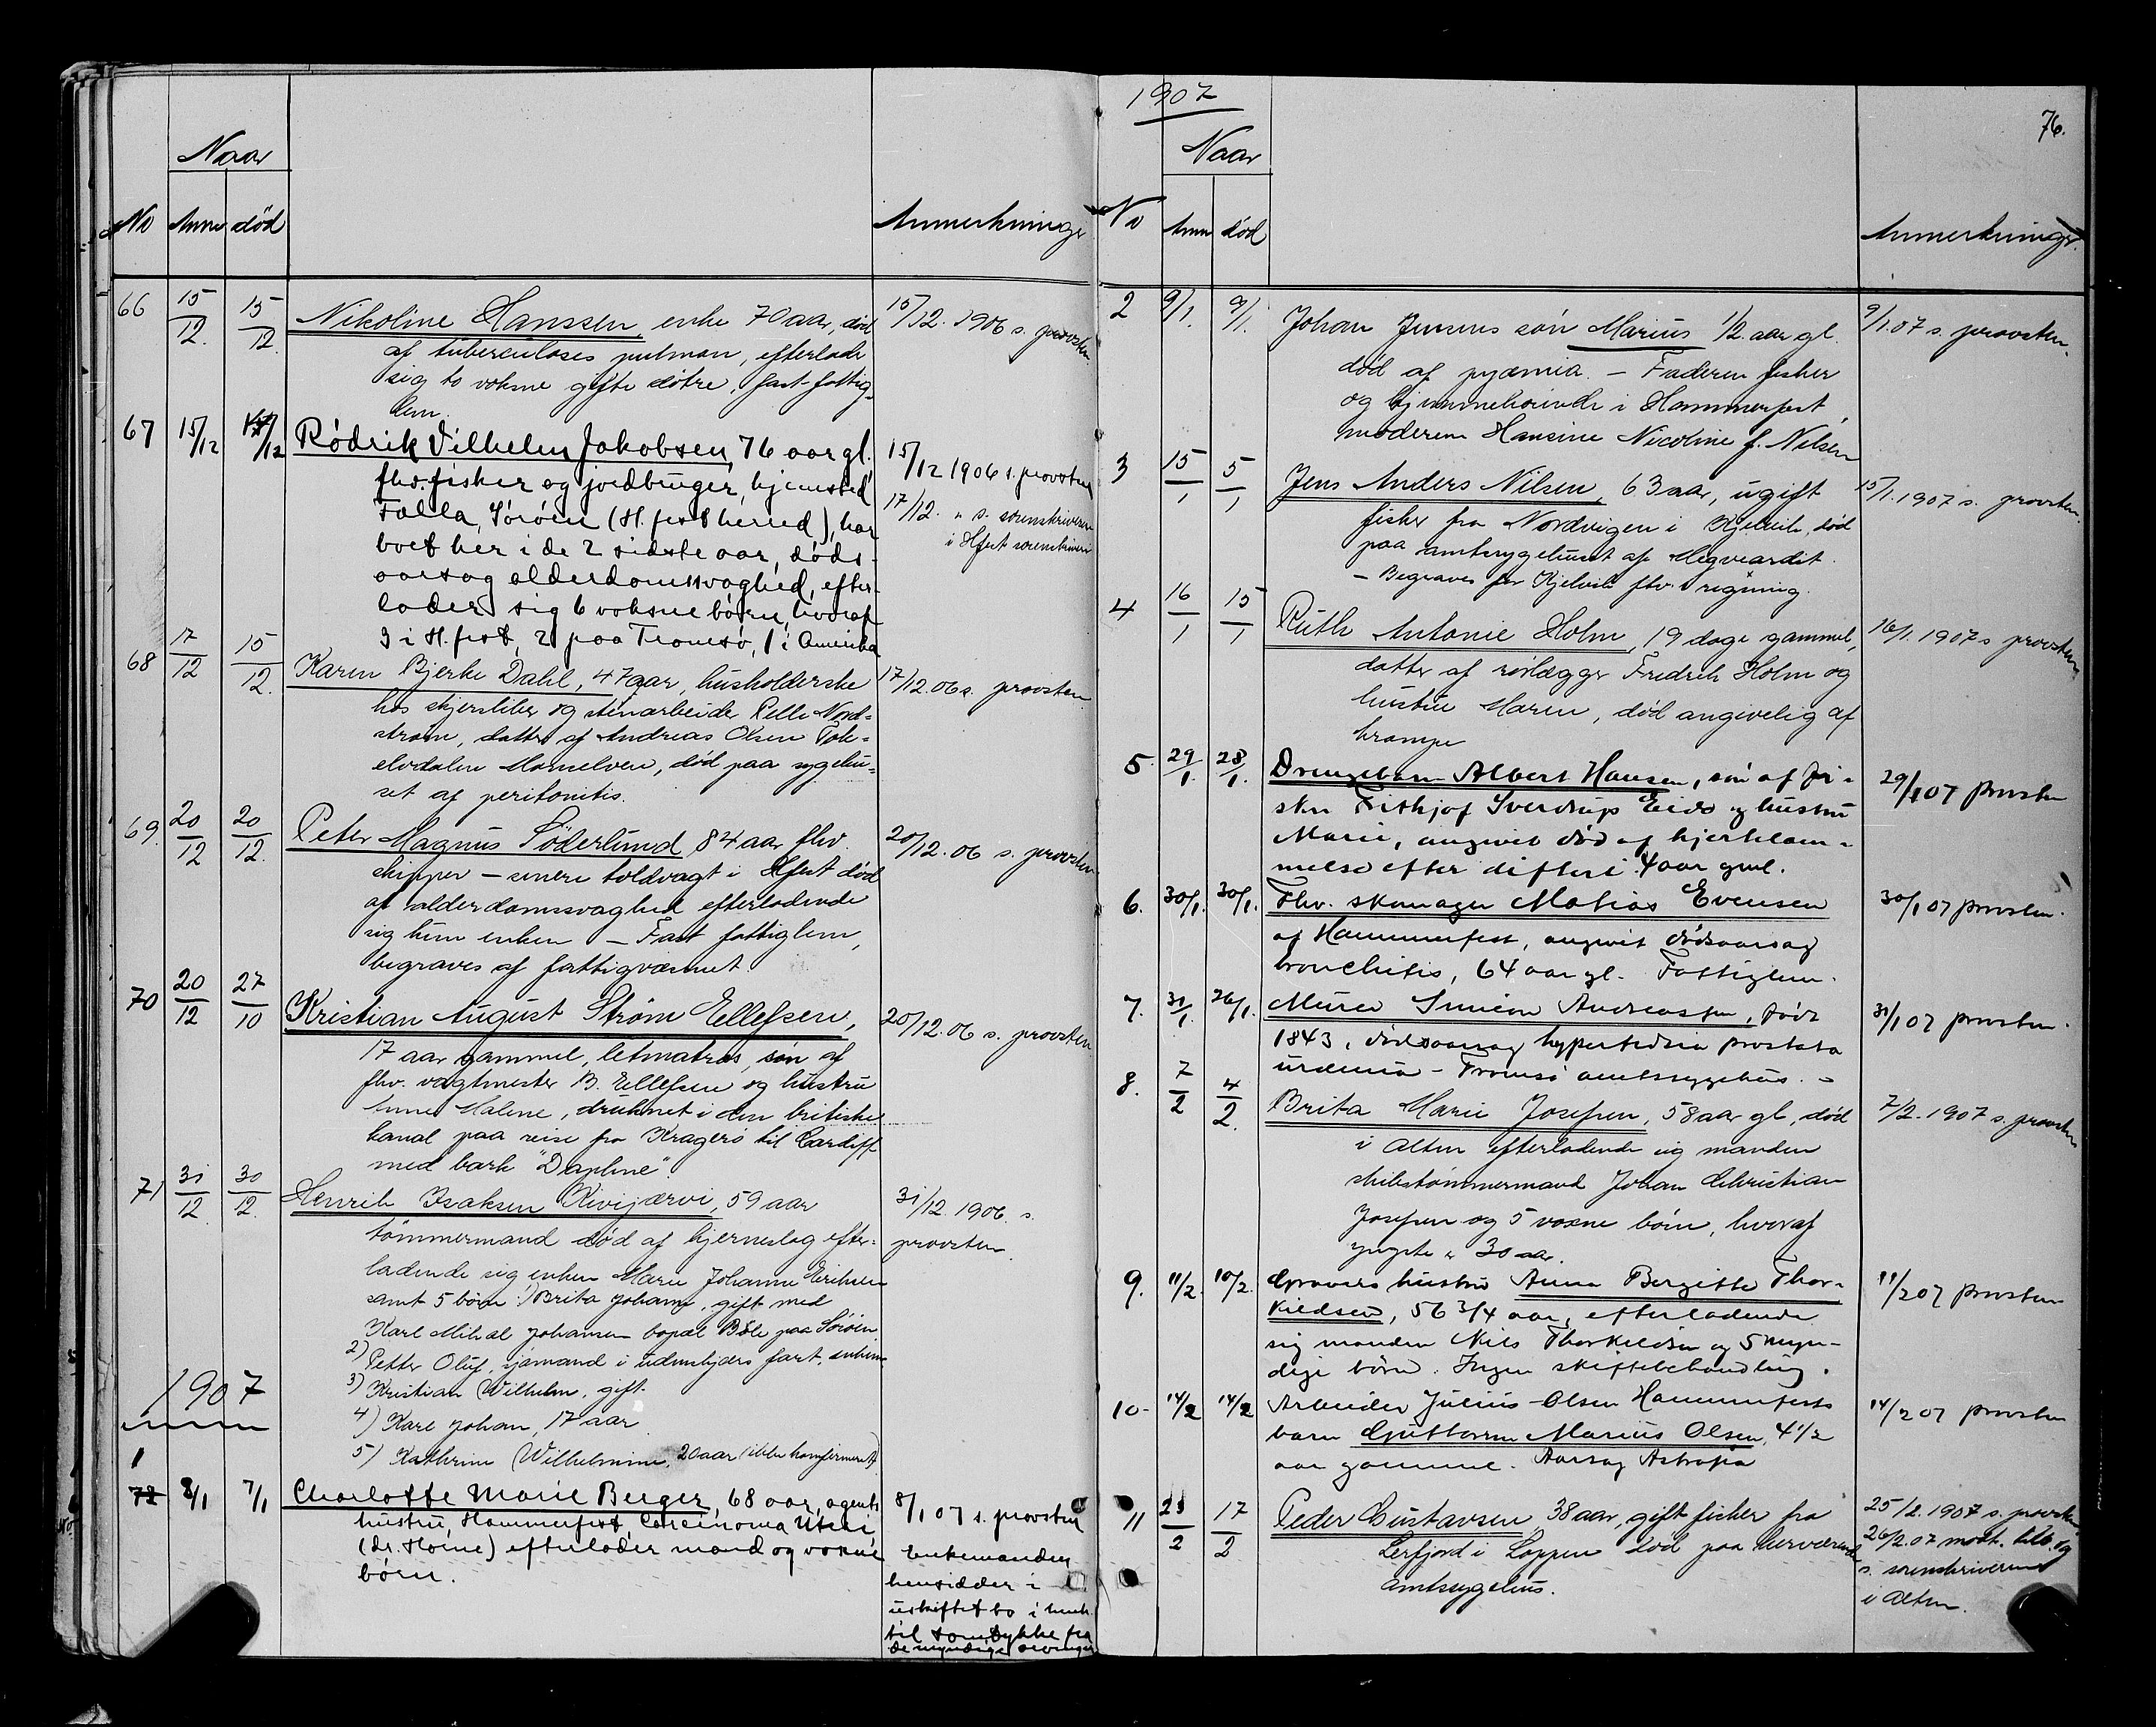 Naar
No Anm død Anmerkninger
66 15/12. 15/12. Nikoline Hanssen, enke 70 aar, død 15/12. 1906 s. provsten
af tuberculoses pulman, efterlader
sig to voksne gifte døtre, fast fattig-
lem.
67 15/12 /12 Rødrik Vilhelm Jakobsen, 76 aar gl. 15/12 1906 s. provsten
fhv. fisker og jordbruger, hjemsted 17/12. " s. sorenskriveren
Falla, Sørøen (H.fest herred), har i Hfest sorenskriveri
boet her i de 2 sidste aar, døds-
aarsag alderdomssvaghed, efter-
lader sig 6 voksne børn, hvoraf
3 i H.fest, 2 paa Tromsø, 1 i Amerika
68 17/12 15/12. Karen Bjerke Dahl, 47 aar, husholderske 17/12.06 s. provsten
hos skjersliber og stenarbeider Pelle Nord-
strøm, datter af Andreas Olsen
Maalselven, død paa sygehu-
set af peritonitis.
69. 20/12 20/12. Peter Magnus Söderlund 84 aar fhv. 20/12.06 s. provsten
skipper – senere toldvagt i Hfest død
af alderdomssvaghed efterladende
sig kun enken – Fast fattiglem,
begraves af fattigvæsenet.
70 20/12 27/10 Kristian August Strøm Ellefsen, 20/12.06 s. provsten
17 aar gammel, letmatros, søn af
fhv. vagtmester B. Ellefsen og hustru
Anne Malene, druknet i den britiske
kanal paa reise fra Kragerø til Cardiff
med bark "Daphne".
71 31/12. 30/12. Henrik Isaksen Kivijærvi, 59 aar 31/12. 1906. s.
tømmermand død af hjerneslag efter- provsten.
ladende sig enken Marie Johanne Eriksen
samt 5 børn: 1) Brita Johanne, gift med
Karl Mikal Johansen bopæl Bøle paa Sørøen
2) Petter Oluf, sjømand i udenrigs fart,
3) Kristian Wilhelm, gift.
1907
4) Karl Johan, 17 aar
5) Kathrine Wilhelmine, 20 aar (ikke konfirmeret)
1
72 8/1 7/1 Charlotte Marie Berger, 68 aar, agents 8/1 07 s. provsten
hustru, Hammerfest, Carcinoma Uteri Enkemanden
(dr. ) efterlader mand og voxne hensidder i
børn. uskiftet bo i henh.
til samtykke fra
de myndige arvinger
1907
76.
Naar
No Anm død Anmerkninger.
2 9/1. 9/1. Johan Jensens søn Marius 1/2 aar gl. 9/1.07 s. provsten.
død af pyæmia. – Faderen fisker
og hjemmehørende i Hammerfest,
moderen Hansine Nicoline f. Nilsen
3 15/1 5/1 Jens Anders Nilsen, 63 aar, ugift 15/1.1907 s. provsten.
fisker fra Nordvigen i Kjelvik, død
paa amtssygehuset af
– Begraves for Kjelvik fhv. regning.
4 16/1 15/1 Ruth Antonie Holm, 19 dage gammel, 16/1. 1907 s provsten
datter af rørlægger Fredrik Holm og
hustru Maren, død angivelig af
krampe
5. 29/1. 28/1. Drengebarn Albert Hansen, søn af fi- 29/1 07 provsten
sker Fithjof Sverdrup Eids og hustru
Marie, angivet død af hjertelam-
melse efter difteri. 4 aar gml.
6. 30/1. 30/1. Fhv. skomager Matias Evensen 30/1 07 provsten.
af Hammerfest, angivet dødsaarsag
bronchitis, 64 aar gl. Fattiglem.
7. 31/1. 26/1. Murer Simeon Andreassen, født 31/1 07 provsten.
1843, dødsaarsag prostata
– Tromsø amtssygehus. –
8. 7/2 4/2. Brita Marie Josefsen, 58 aar gl, død 7/2. 1907 s. provsten
i Alten efterladende sig manden
skibstømmermand Johan Christian
Josefsen og 5 voxne børn, hvoraf
yngste " 30 aar.
9. 11/2. 10/2. Gravers hustru Anna Bergitte Thor- 11/2 07 provsten
kildsen, 56 3/4 aar, efterladende
sig manden Nils Thorkildsen og 5 myn-
dige børn. Ingen skiftebehandling.
10- 14/2 14/2 Arbeider Julius Olsen Hammerfests 14/2 07 provsten
barn Guttorm Marius Olsen, 4 1/2
aar gamme. Aarsag Astrofia
11 23/2 17/2 Peder Gustavsen, 38 aar, gift fisker fra 25/2. 1907 s. provsten
Lerfjord i Loppen død paa herværende 26/2.07 modt. og
amtssygehus. s. sorenskriveren
i Alten.